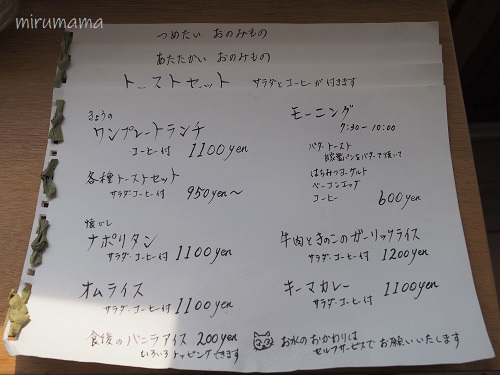 mirumama
つめたい おのみもの
あたたかい おのみもの
トーストセット サラダとコーヒーが付きます
きょうの
ワンプレートランチ
コーヒー付 1100yen
各種トーストセット
サラダ・コーヒー付 950yen〜
懐かし
ナポリタン
サラダ・コーヒー付 1100yen
オムライス
サラダ・コーヒー付 1100yen
食後のバニラアイス 200yen
いろいろトッピングできます
モーニング
7:30-10:00
バタートースト
パンをバターで焼いて
はちみつヨーグルト
ベーコンエッグ
コーヒー 600yen
牛肉ときのこのガーリックライス
サラダ・コーヒー付 1200yen
キーマカレー
サラダ・コーヒー付 1100yen
お水のおかわりは
セルフサービスでお願いいたします